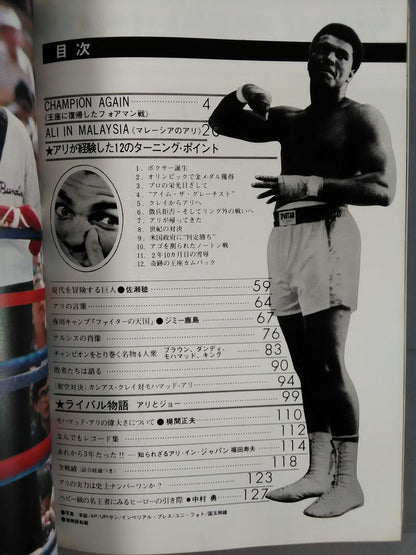 目次
CHAMPION AGAIN 4
〈王座に復帰したフォアマン戦〉
ALI IN MALAYSIA〈マレーシアのアリ〉 20
★アリが経験した12のターニング・ポイント
1. ボクサー誕生
2. オリンピックで金メダル獲得
3. プロの栄光めざして
4. “アイム・ザ・グレーチスト”
5. クレイからアリへ
6. 徴兵拒否—そしてリング外の戦いへ
7. アリが帰ってきた
8. 世紀の対決
9. 米国政府に“判定勝ち”
10. アゴを割られたノートン戦
11. 2年10カ月目の雪辱
12. 奇跡の王座カムバック
現代を冒険する巨人●佐瀬稔 59
アリの言葉 64
専用キャンプ「ファイターの天国」●ジミー鹿島 67
ナルシスの肖像 76
チャンピオンをとり巻く名物4人衆 ブラウン、ダンディ、モハマッド、キング 83
敗者たちは語る 90
〈架空対決〉カシアス・クレイ対モハマッド・アリ 94
★ライバル物語 アリとジョー 99
モハマッド・アリの偉大さについて●梶間正夫 110
なんでもレコード集 112
あれから3年たった!!—知られざるアリ・イン・ジャパン 福田寿夫 114
全戦績〈試合経過つき〉 118
アリの実力は史上ナンバーワンか? 123
ヘビー級の名王者にみるヒーローの引き際●中村勇 127
SPARTAN